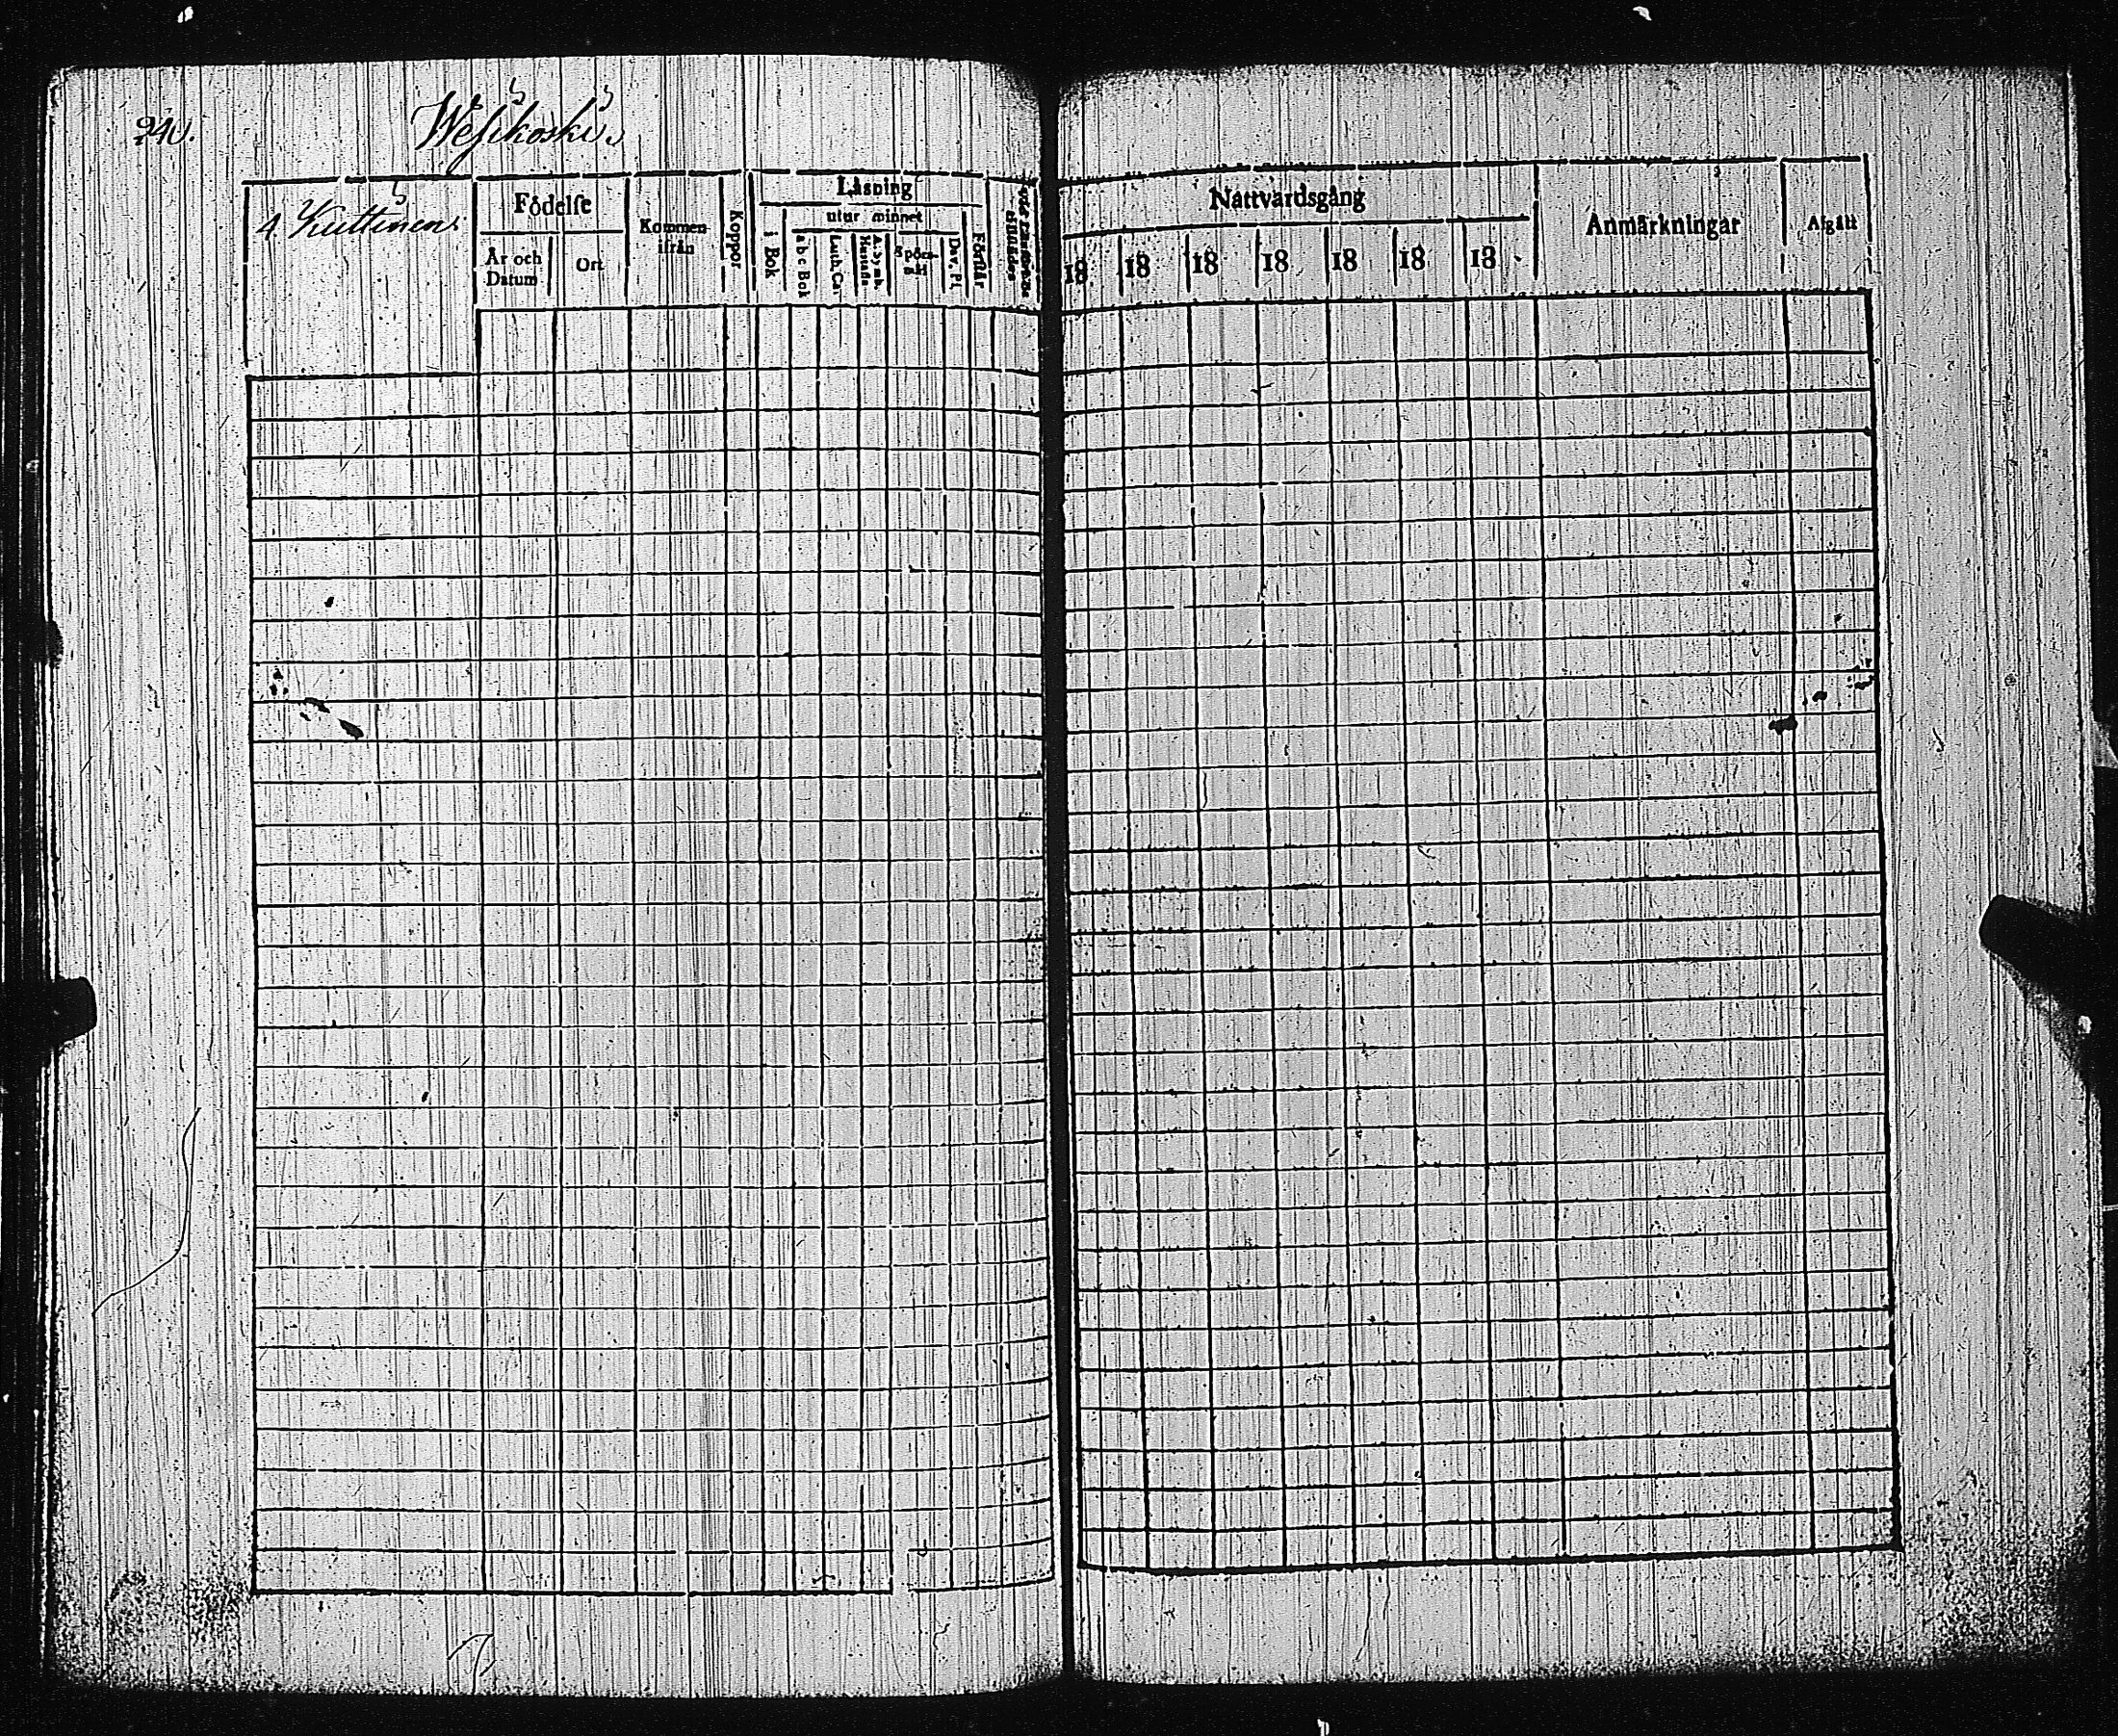 240.
Wesikoski.
4 Kuttinen
Födelse
År och Datum
Ort
Kommen ifrån
Koppor
Läsning
utur minnet
i Bok
a b c Bok
Luth. Cat.
A. Symb. Hustafla
Spörs- mål
Dav. Ps.
Förstår
Nattvardsgång
18 18 18 18 18 18 18
Anmärkningar
Afgått